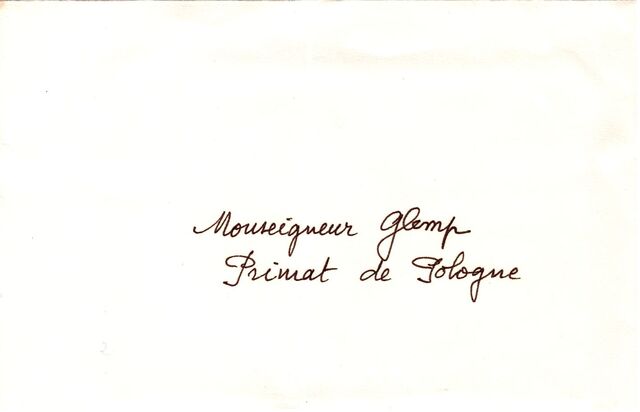 Monseigneur Glemp
Primat de Pologne